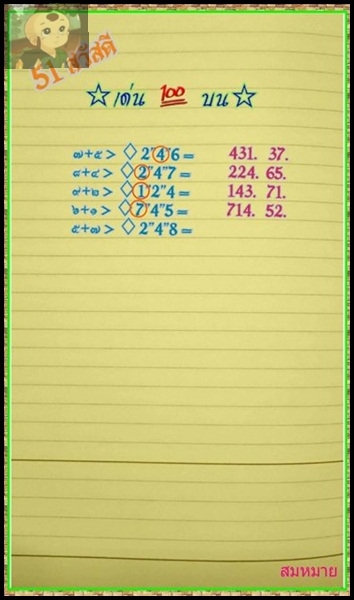 51 สวัสดี
☆ เด่น 100 บน ☆
๗+๕ > ◇ 2"4"6 = 431. 37.
๘+๔ > ◇ 2"4"7 = 224. 65.
๙+๒ > ◇ 1"2"4 = 143. 71.
๖+๑ > ◇ 7"4"5 = 714. 52.
๕+๗ > ◇ 2"4"8 =
สมหมาย